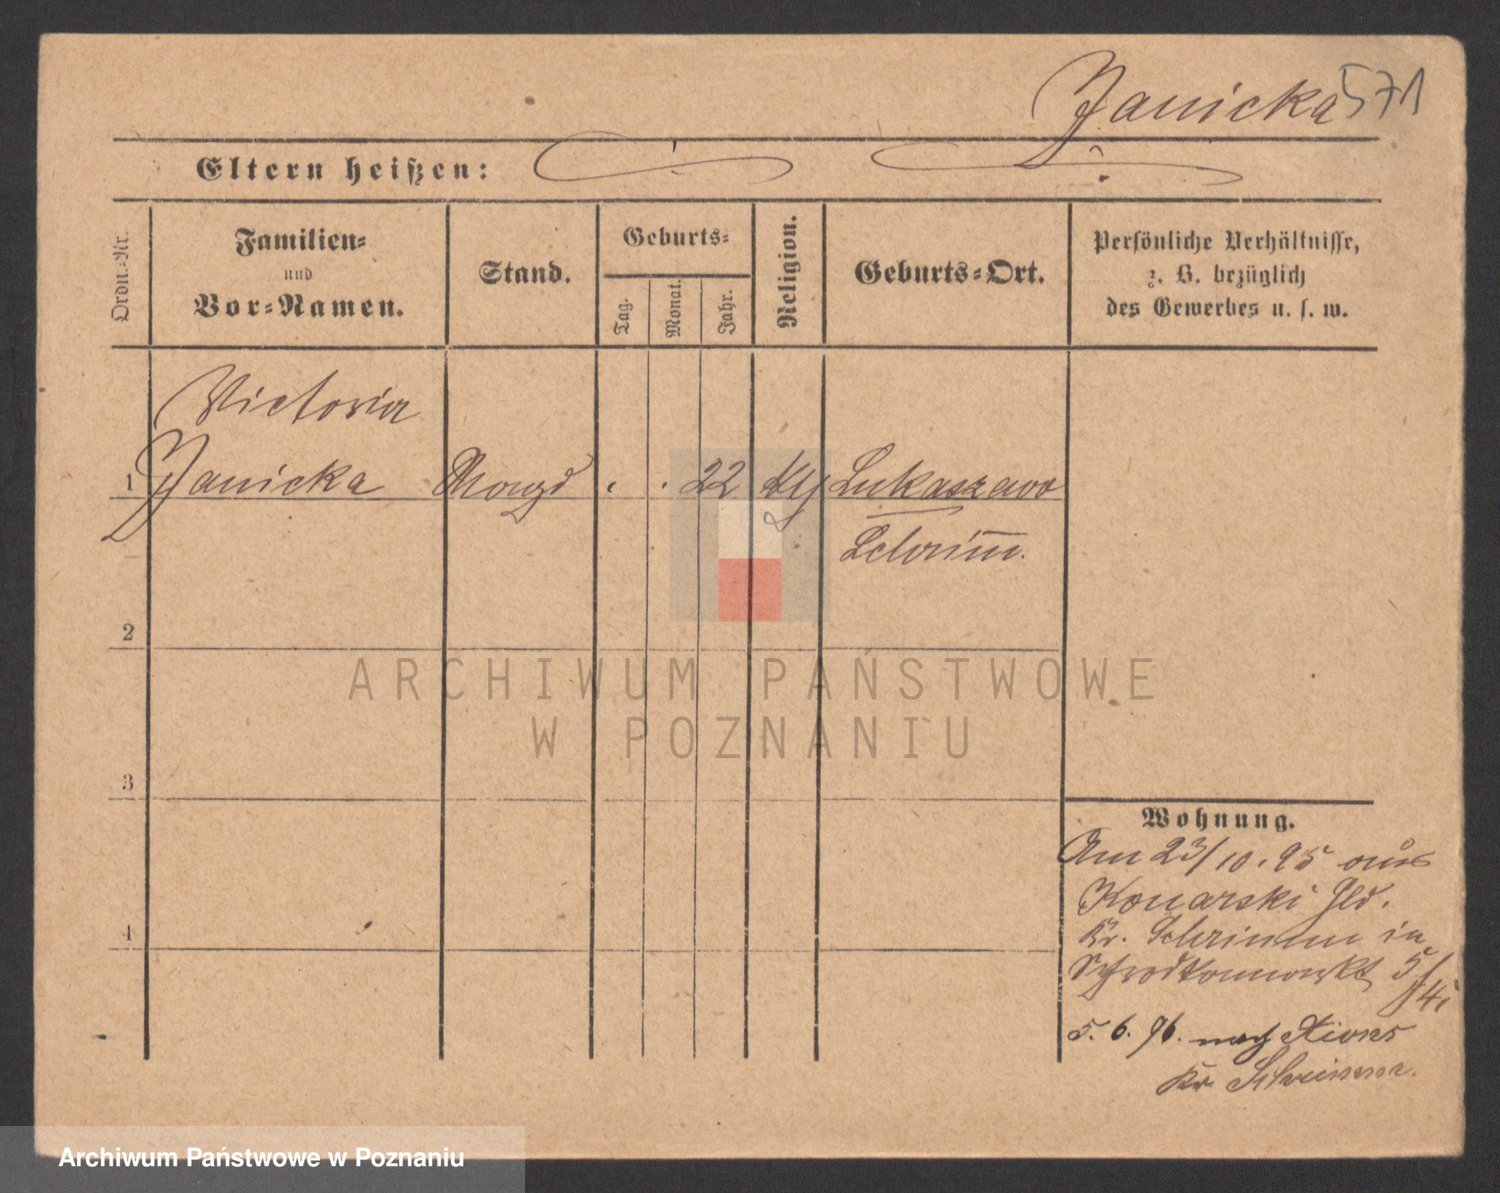 Janicka 571
Eltern heißen:
Ordn.-Nr.
Familien-
und
Vor-Namen.
Stand.
Geburts-
Tag.
Monat.
Jahr.
Religion.
Geburts-Ort.
Persönliche Verhältnisse,
z. B. bezüglich
des Gewerbes u. s. w.
Victoria
1 Janicka Magd . . 22 kth Lukaszewo
Schrimm.
2
3
4
Wohnung.
Am 23/10.95 aus
Konarski Hld.
Kr. Schrimm in
Schrodkamarkt 5/
5.6.96. nach Xions
Kr. Schrimm.
ARCHIWUM PAŃSTWOWE
W POZNANIU
Archiwum Państwowe w Poznaniu